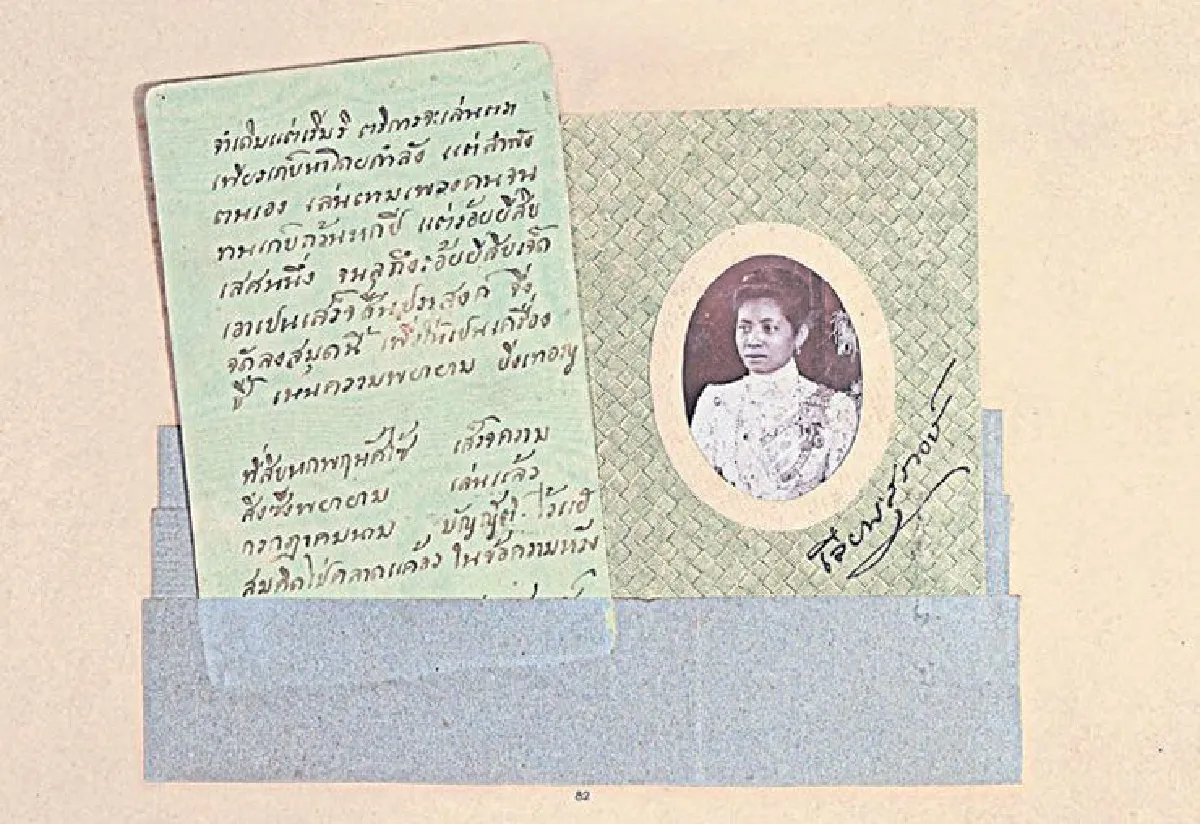 จำเดิมแต่เริ่มริ ตริการจะเล่นตรา
เพียรเก็บหาโดยกำลัง แต่ลำพัง
ตนเอง เล่นตามเพลงคนจน
ทนเก็บถ้วนหกปี แต่ร้อยยี่สิบ
เศศหนึ่ง จนลุถึงร้อยยี่สิบเจ็ด
เอาเปนเสร็จสิ้นประสงค์ จึ่ง
จัดลงสมุดนี้ เพื่อให้เปนเครื่อง
ชี้ เหนความพยายาม
เสร็จความ
สิ่งซึ่งพยายาม เล่นแล้ว
กรกฎาคมนาม บัญญัติ ไว้แฮ
สมคิดไป่คลาดแคล้ว ในข้อความหวัง
82